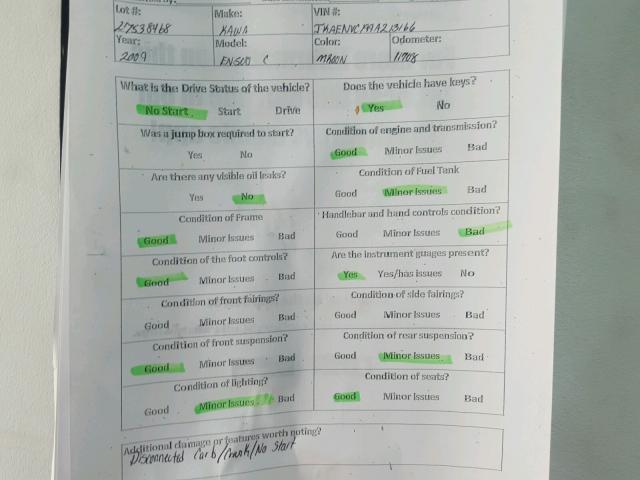 Lot #: Make: VIN #:
27538468 KAWA
Year: Model: Color: Odometer:
2009 EN500 C MAROON 11908
What is the Drive Status of the vehicle? Does the vehicle have keys?
No Start Start Drive Yes No
Was a jump box required to start? Condition of engine and transmission?
Yes No Good Minor Issues Bad
Are there any visible oil leaks? Condition of Fuel Tank
Yes No Good Minor Issues Bad
Condition of Frame Handlebar and hand controls condition?
Good Minor Issues Bad Good Minor Issues Bad
Condition of the foot controls? Are the instrument guages present?
Good Minor Issues Bad Yes Yes/has issues No
Condition of front fairings? Condition of side fairings?
Good Minor Issues Bad Good Minor Issues Bad
Condition of front suspension? Condition of rear suspension?
Good Minor Issues Bad Good Minor Issues Bad
Condition of lighting? Condition of seats?
Good Minor Issues Bad Good Minor Issues Bad
Additional damage or features worth noting?
Disconnected Carb/Crank/No Start